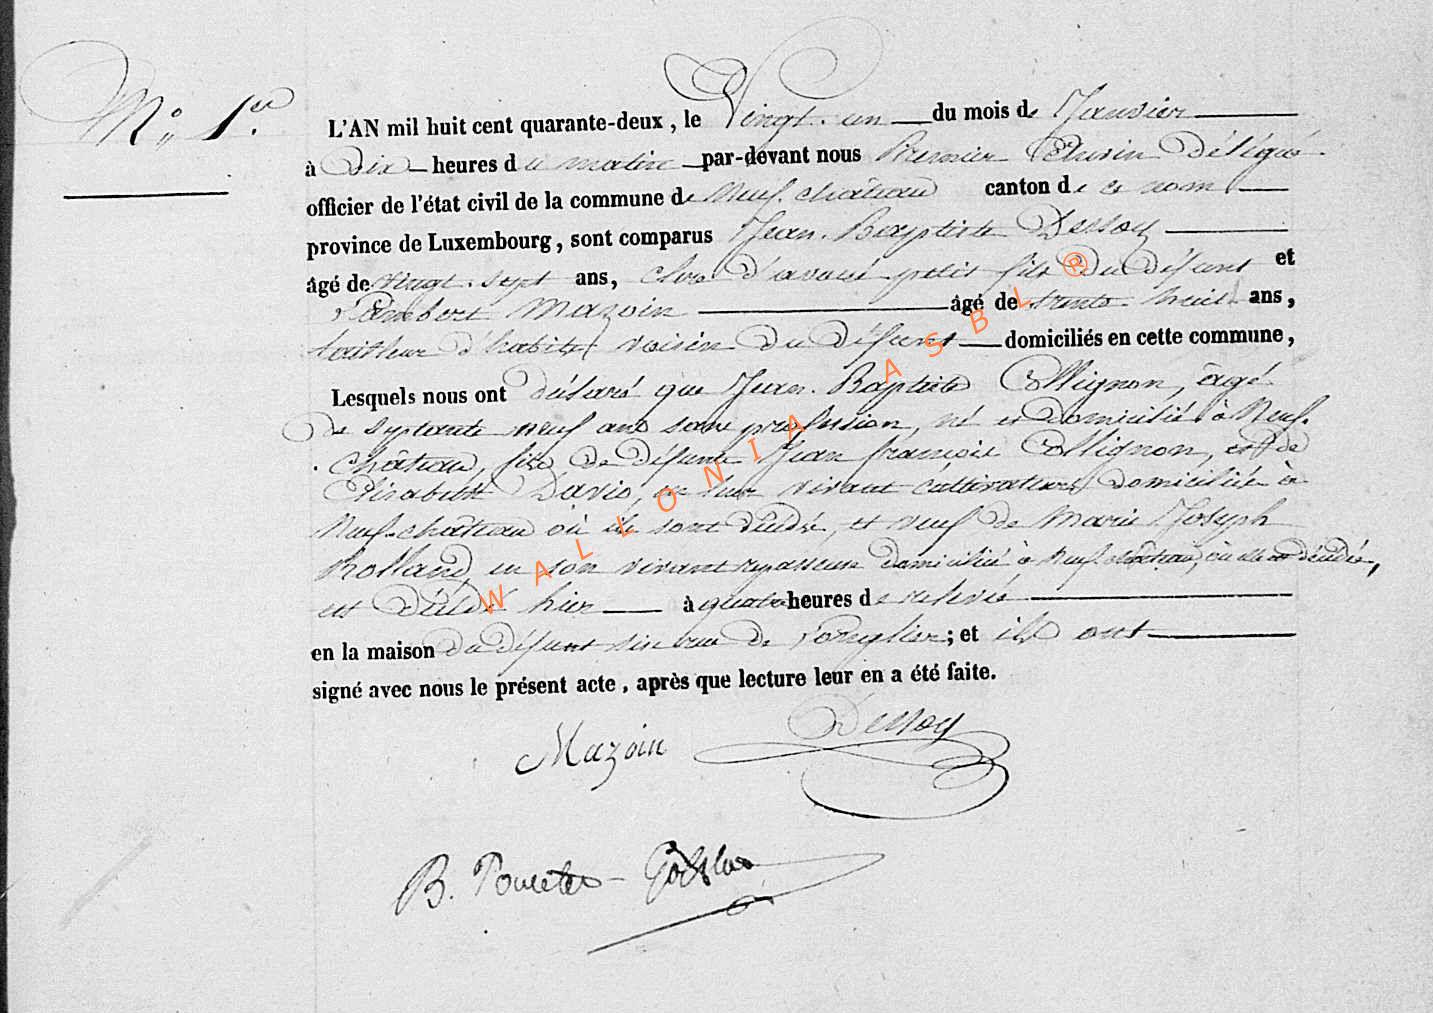 N° 1er
L'AN mil huit cent quarante-deux, le Vingt-un du mois de Janvier
à Dix heures du matin par-devant nous Premier Echevin Délégué
officier de l'état civil de la commune de Neufchâteau canton de ce nom
province de Luxembourg, sont comparus Jean-Baptiste Dessoy
âgé de vingt-sept ans, clerc d'avoué petit fils du défunt et
Lambert Mazoin âgé de trente huit ans,
tailleur d'habits, voisin du défunt domiciliés en cette commune,
Lesquels nous ont déclaré que Jean-Baptiste Collignon, âgé
de septante neuf ans sans profession, né et domicilié à Neuf-
château, fils de défunts Jean françois Collignon, et de
Elisabeth David, en leur vivant cultivateurs domiciliés à
Neufchâteau où ils sont décédés, et veuf de Marie Joseph
Rolland, en son vivant domiciliée à Neufchâteau, où elle est décédée,
est décédé hier à quatre heures de relevée
en la maison du défunt sise rue de ; et ils ont
signé avec nous le présent acte, après que lecture leur en a été faite.
Mazoin Dessoy
B. Poncelet
WALLONIA ASBL ®